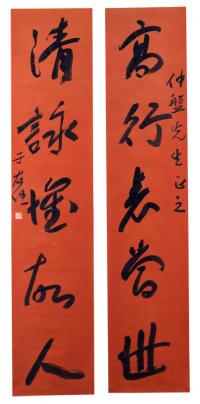 仲盤先生正之
高行表當世
清詠懷故人
于右任